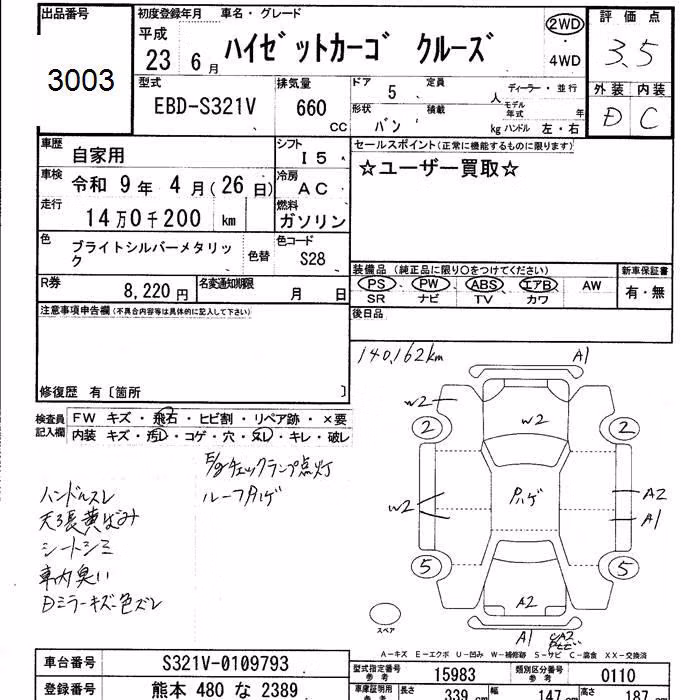 出品番号
3003
初度登録年月 車名・グレード
平成
23 6月 ハイゼットカーゴ クルーズ
2WD
・
4WD
評価点
3.5
外装 内装
D C
型式
EBD-S321V
排気量
660
CC
ドア 定員
5 人
形状 積載
バン kg
ディーラー・並行
モデル年式 年
ハンドル 左・右
車歴
自家用
シフト
I5
車検
令和 9年 4月(26日)
冷房
AC
走行
14万0千200 km
燃料
ガソリン
色
ブライトシルバーメタリック
色替
色コード
S28
R券
8,220円
名変通知期限
月 日
セールスポイント(正常に機能するものに限ります)
☆ユーザー買取☆
装備品 (純正品に限り〇をつけてください)
PS PW ABS エアB AW
SR ナビ TV カワ
新車保証書
有・無
後日品
注意事項申告欄(不具合内容等は具体的に記入して下さい)
修復歴 有〔箇所 〕
検査員
記入欄
FW キズ・飛石・ヒビ割・リペア跡・×要
内装 キズ・汚レ・コゲ・穴・スレ・キレ・破レ
E/gチェックランプ点灯
ルーフハゲ
ハンドルスレ
天張黄ばみ
シートシミ
車内臭い
Dミラーキズ色ズレ
140,162km
A1
W2
W2
2 2
W2
ハゲ
A2
A1
5 5
A2
A1
スペア
A-キズ E-エクボ U-凹み W-補修跡 S-サビ C-腐食 XX-交換済
車台番号
S321V-0109793
登録番号
熊本 480 な 2389
型式指定番号
参考
15983
類別区分番号
参考
0110
車庫証明用
参考
長さ
339 cm
幅
147 cm
高さ
187 cm